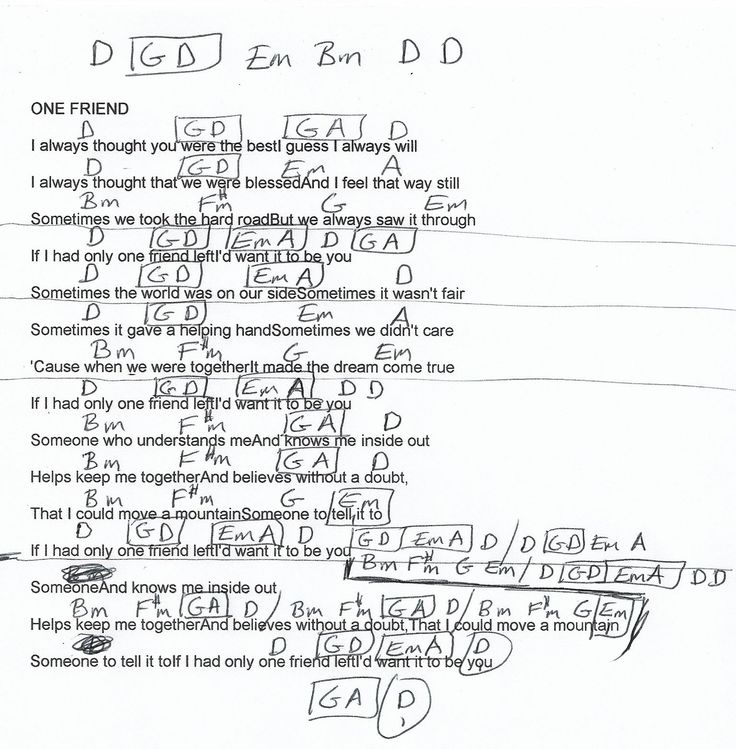 D G D Em Bm D D
ONE FRIEND
D G D G A D
I always thought you were the bestI guess I always will
D G D Em A
I always thought that we were blessedAnd I feel that way still
Bm F#m G Em
Sometimes we took the hard roadBut we always saw it through
D G D Em A D G A
If I had only one friend leftI'd want it to be you
D G D Em A D
Sometimes the world was on our sideSometimes it wasn't fair
D G D Em A
Sometimes it gave a helping handSometimes we didn't care
Bm F#m G Em
'Cause when we were togetherIt made the dream come true
D G D Em A D D
If I had only one friend leftI'd want it to be you
Bm F#m G A D
Someone who understands meAnd knows me inside out
Bm F#m G A D
Helps keep me togetherAnd believes without a doubt,
Bm F#m G Em
That I could move a mountainSomeone to tell it to
D G D Em A D G D / Em A D / D G D Em A
If I had only one friend leftI'd want it to be you
Bm F#m G Em / D G D / Em A / D D
SomeoneAnd knows me inside out
Bm F#m G A D / Bm F#m G A D / Bm F#m G / Em
Helps keep me togetherAnd believes without a doubt,That I could move a mountain
D G D / Em A / D
Someone to tell it toIf I had only one friend leftI'd want it to be you
G A / D